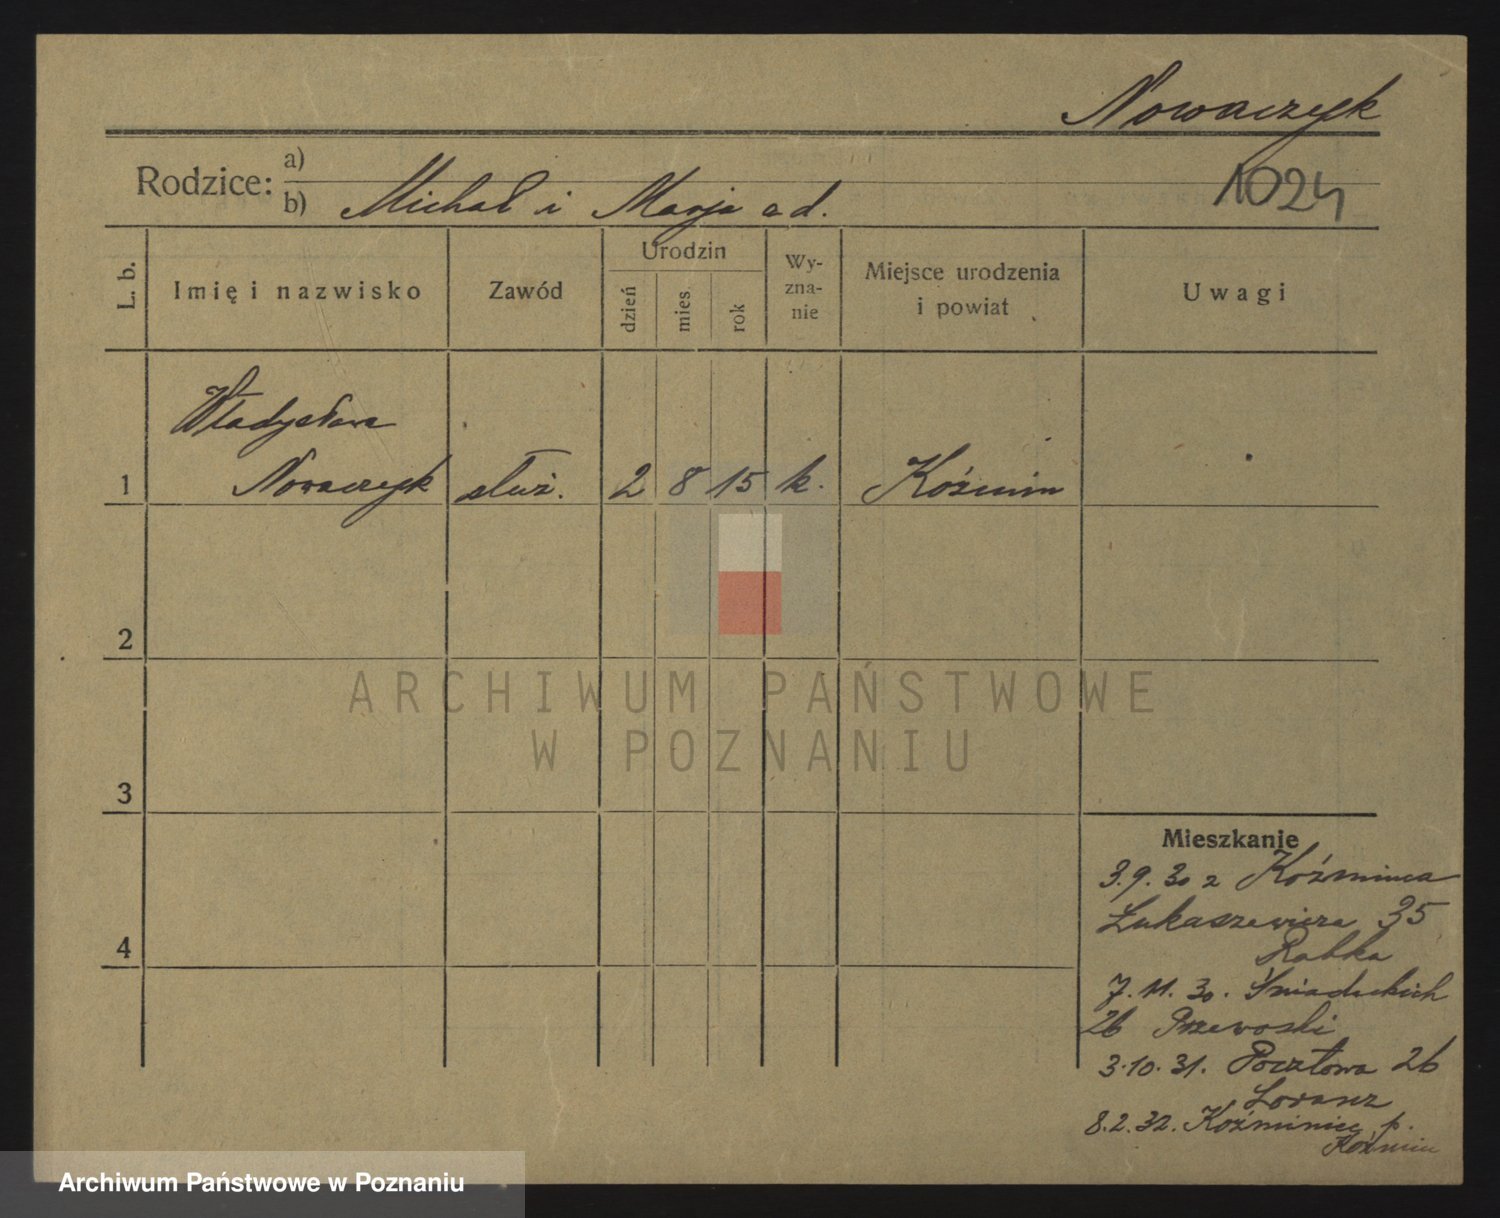 Nowaczyk
1024
Rodzice: a)
b) Michał i Marja ad.
L. b.
Imię i nazwisko
Zawód
Urodzin
dzień
mies.
rok
Wy-
zna-
nie
Miejsce urodzenia
i powiat
Uwagi
Władysława
1 Nowaczyk służ. 2 8 15 k. Koźmin
2
ARCHIWUM PAŃSTWOWE
W POZNANIU
3
Mieszkanie
3.9.30 z Koźmińca
Łukaszewicza 35
Rabka
4
7.11.30. Śniadeckich
26 Przewoski
3.10.31. Pocztowa 26
Loranz
8.2.32. Koźminiec p.
Koźmin
Archiwum Państwowe w Poznaniu